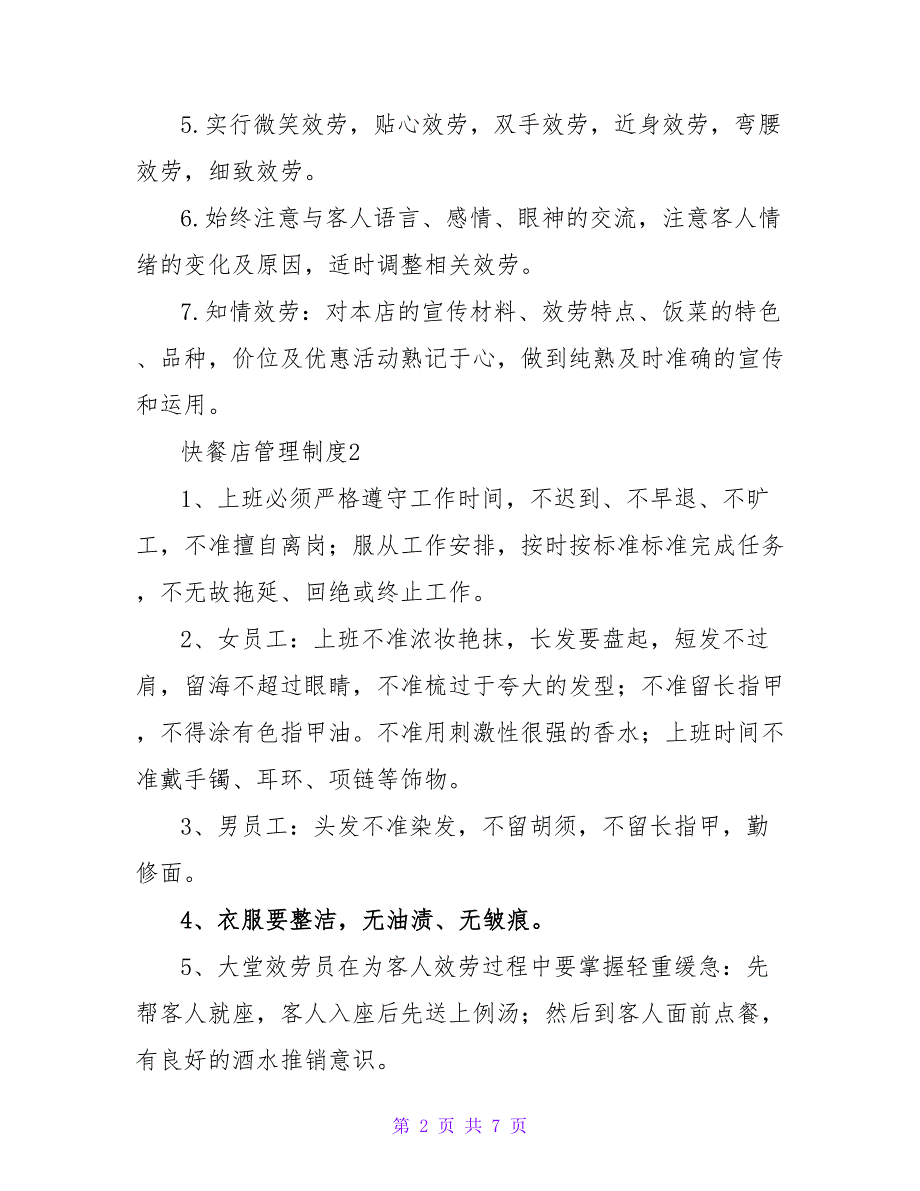 5.实行微笑效劳，贴心效劳，双手效劳，近身效劳，弯腰
效劳，细致效劳。
6.始终注意与客人语言、感情、眼神的交流，注意客人情
绪的变化及原因，适时调整相关效劳。
7.知情效劳：对本店的宣传材料、效劳特点、饭菜的特色
、品种，价位及优惠活动熟记于心，做到纯熟及时准确的宣传
和运用。
快餐店管理制度2
1、上班必须严格遵守工作时间，不迟到、不早退、不旷
工，不准擅自离岗；服从工作安排，按时按标准标准完成任务
，不无故拖延、回绝或终止工作。
2、女员工：上班不准浓妆艳抹，长发要盘起，短发不过
肩，留海不超过眼睛，不准梳过于夸大的发型；不准留长指甲
，不得涂有色指甲油。不准用刺激性很强的香水；上班时间不
准戴手镯、耳环、项链等饰物。
3、男员工：头发不准染发，不留胡须，不留长指甲，勤
修面。
4、衣服要整洁，无油渍、无皱痕。
5、大堂效劳员在为客人效劳过程中要掌握轻重缓急：先
帮客人就座，客人入座后先送上例汤；然后到客人面前点餐，
有良好的酒水推销意识。
第 2 页 共 7 页